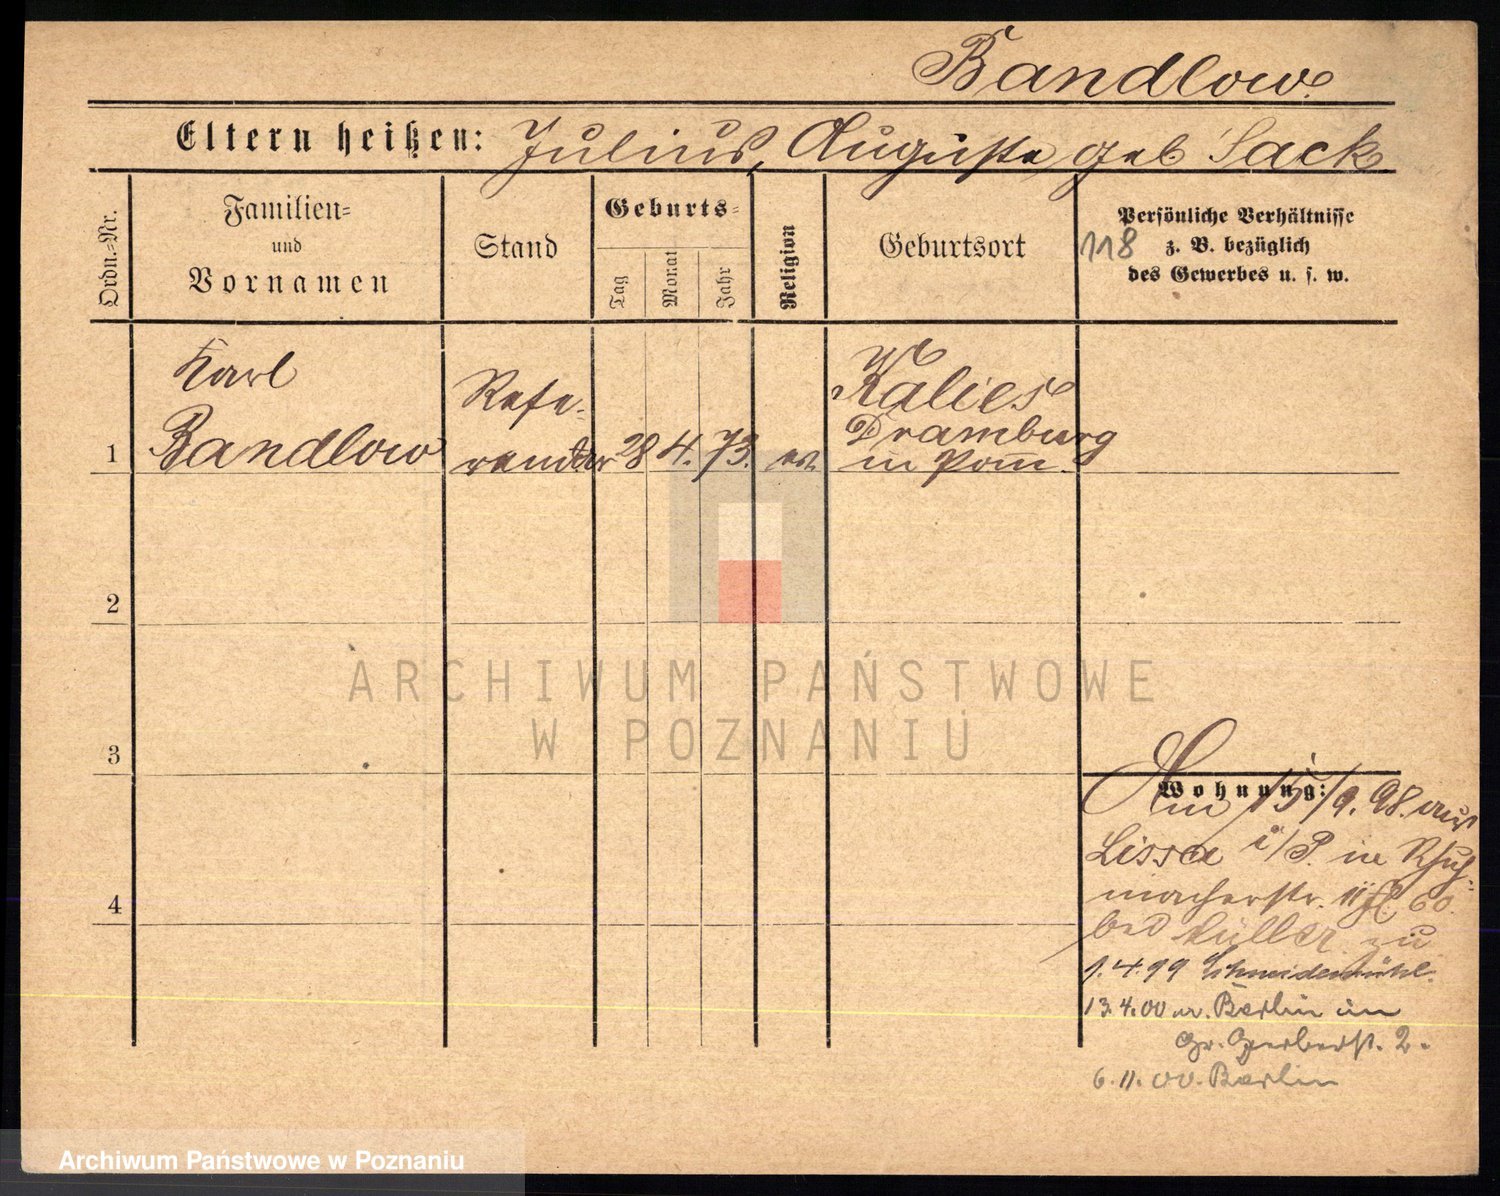 Bandlow.
Eltern heißen: Julius, Auguste, geb Sack.
Ordn.-Nr.
Familien-
und
Vornamen
Stand
Geburts-
Tag
Monat
Jahr
Religion
Geburtsort
Persönliche Verhältnisse
z. B. bezüglich
des Gewerbes u. s. w.
118
1
Karl
Bandlow
Refe-
rendar
28 4. 73.
ev.
Kalies
Dramburg
in Pom.
2
3
4
ARCHIWUM PAŃSTWOWE
W POZNANIU
Wohnung:
Am 15/9. 98. aus
Lissa i/P. in
macherstr. 11
bei Müller zu
1.4.99 Schneidemühl.
13.4.00 v. Berlin in
Gr. Gerberst. 2.
6.11.00. Berlin
Archiwum Państwowe w Poznaniu